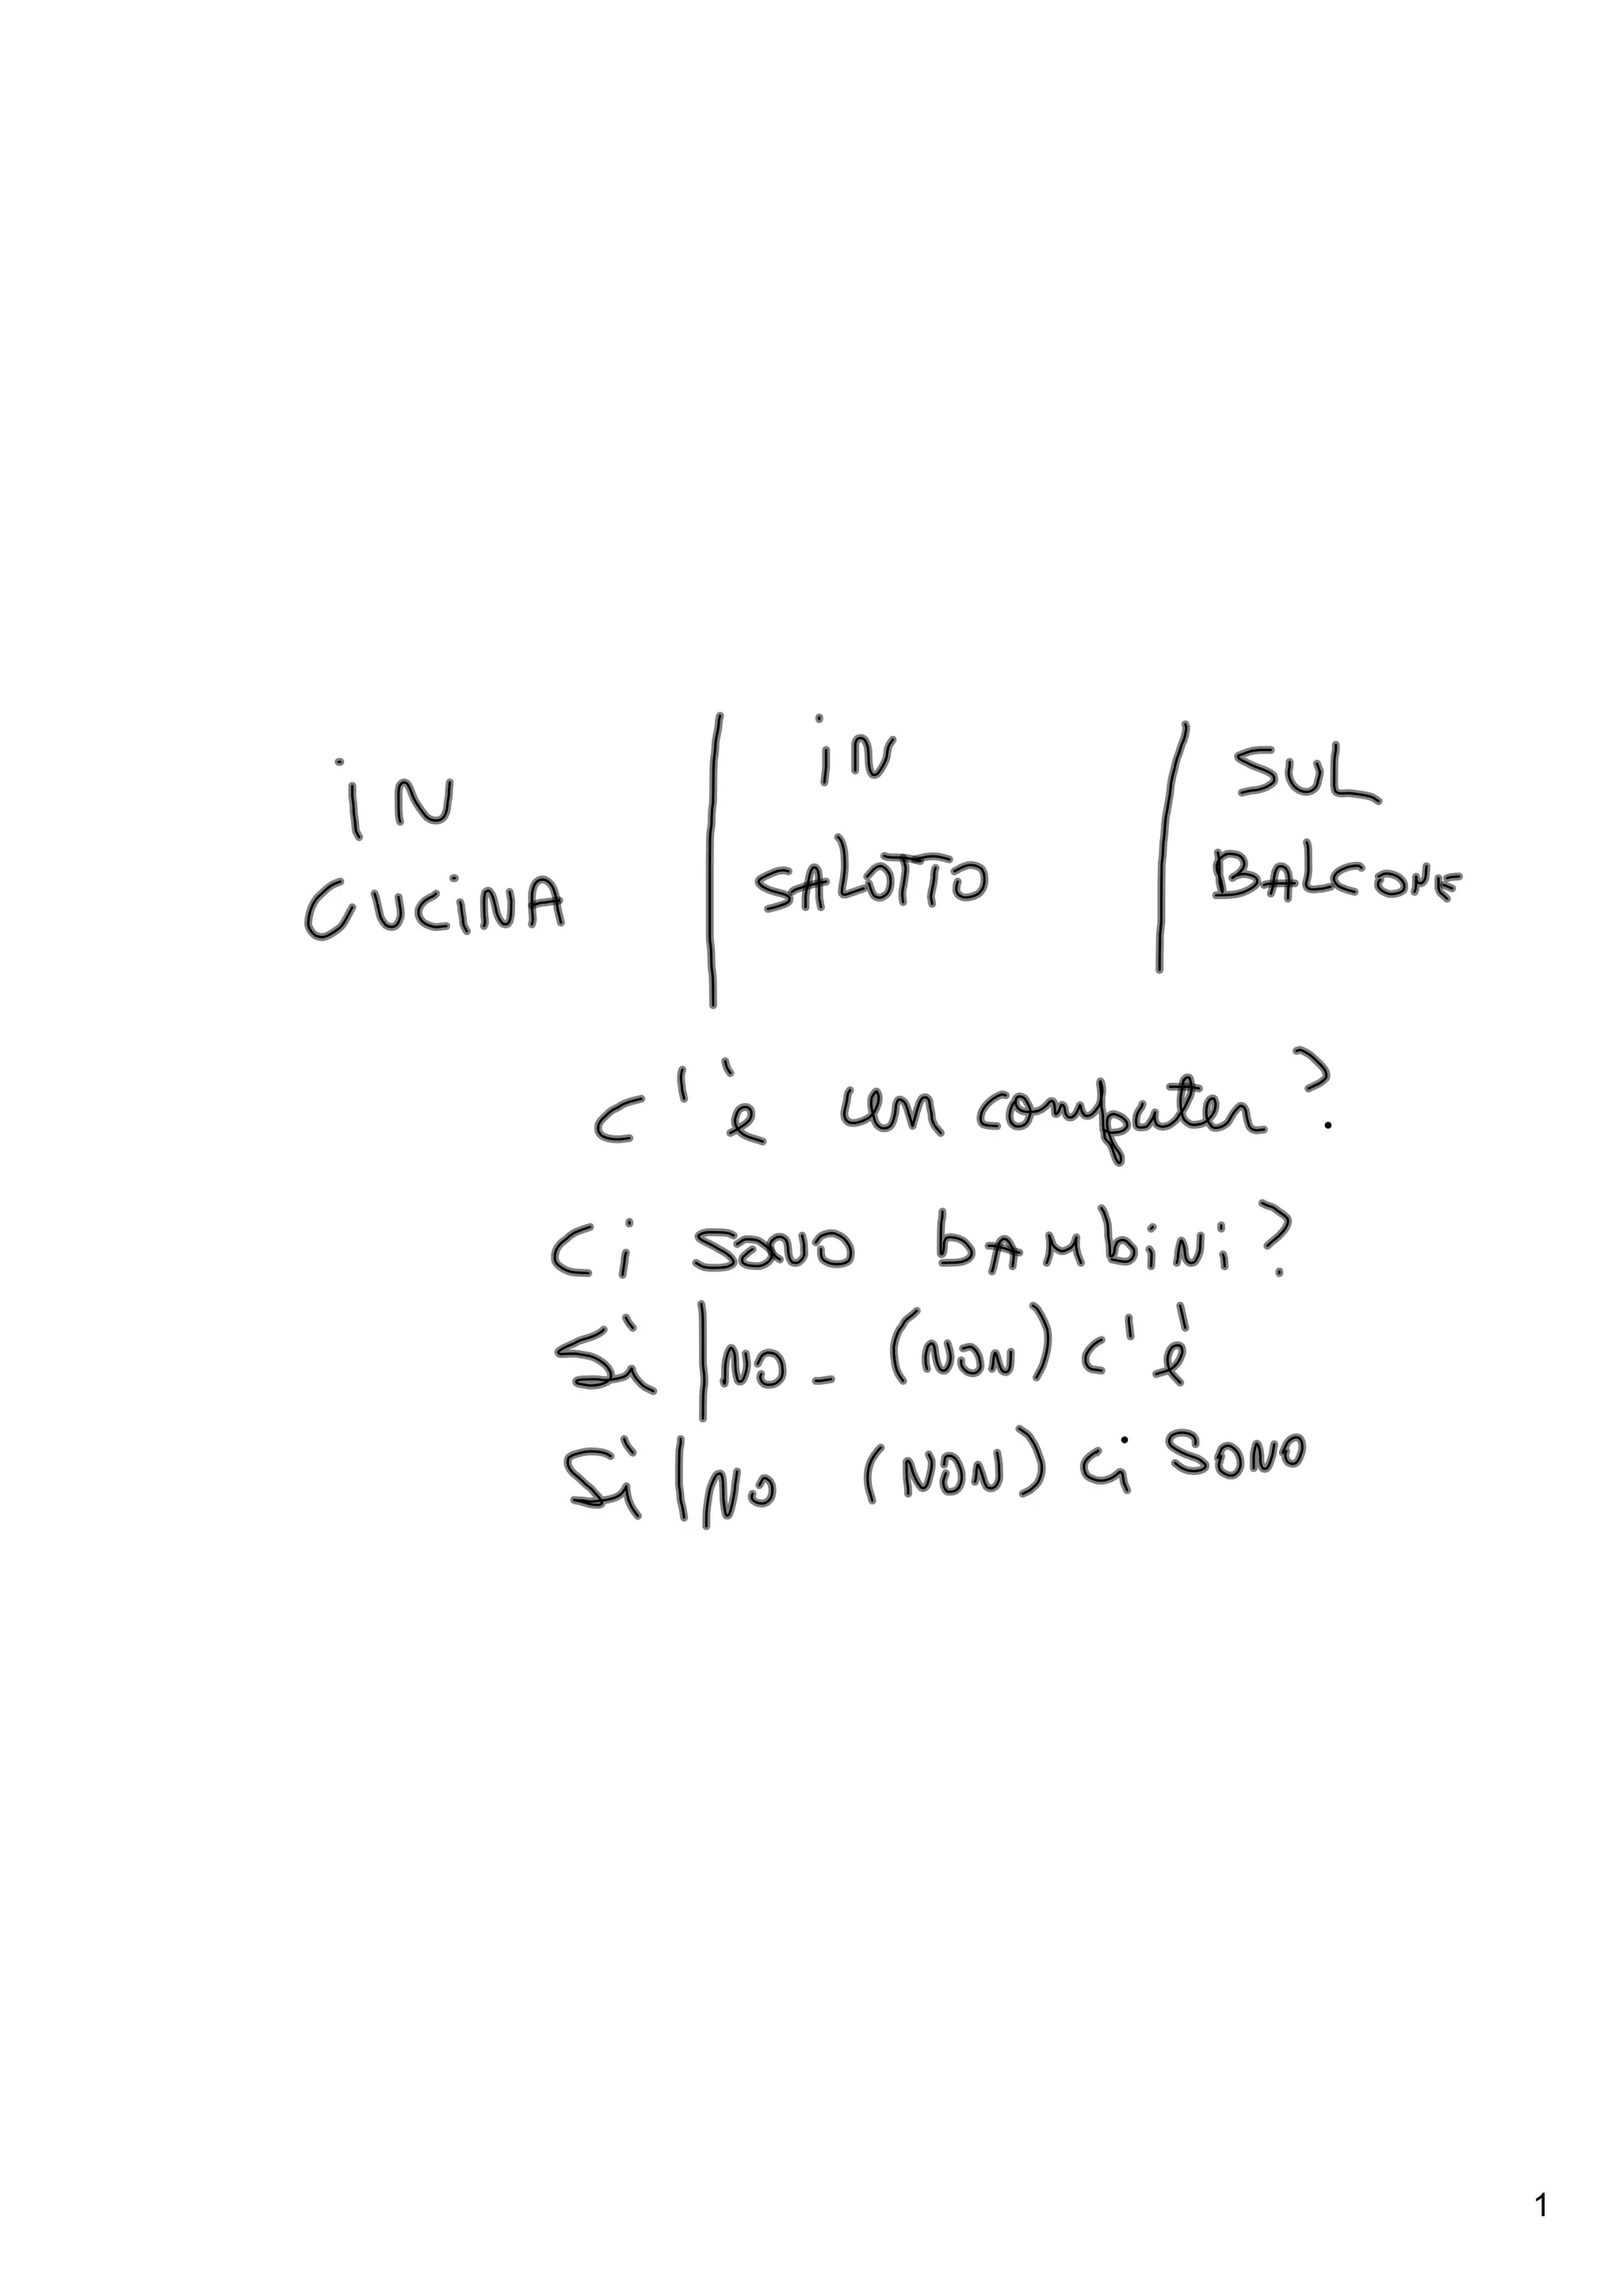 iN | iN | SUL
CUCiNA | SALOTTO | BALCONE
c'è un computer?
Ci SONO bAMbiNi?
Sì | NO - (NON) c'è
Sì | NO (NON) ci SONO
1